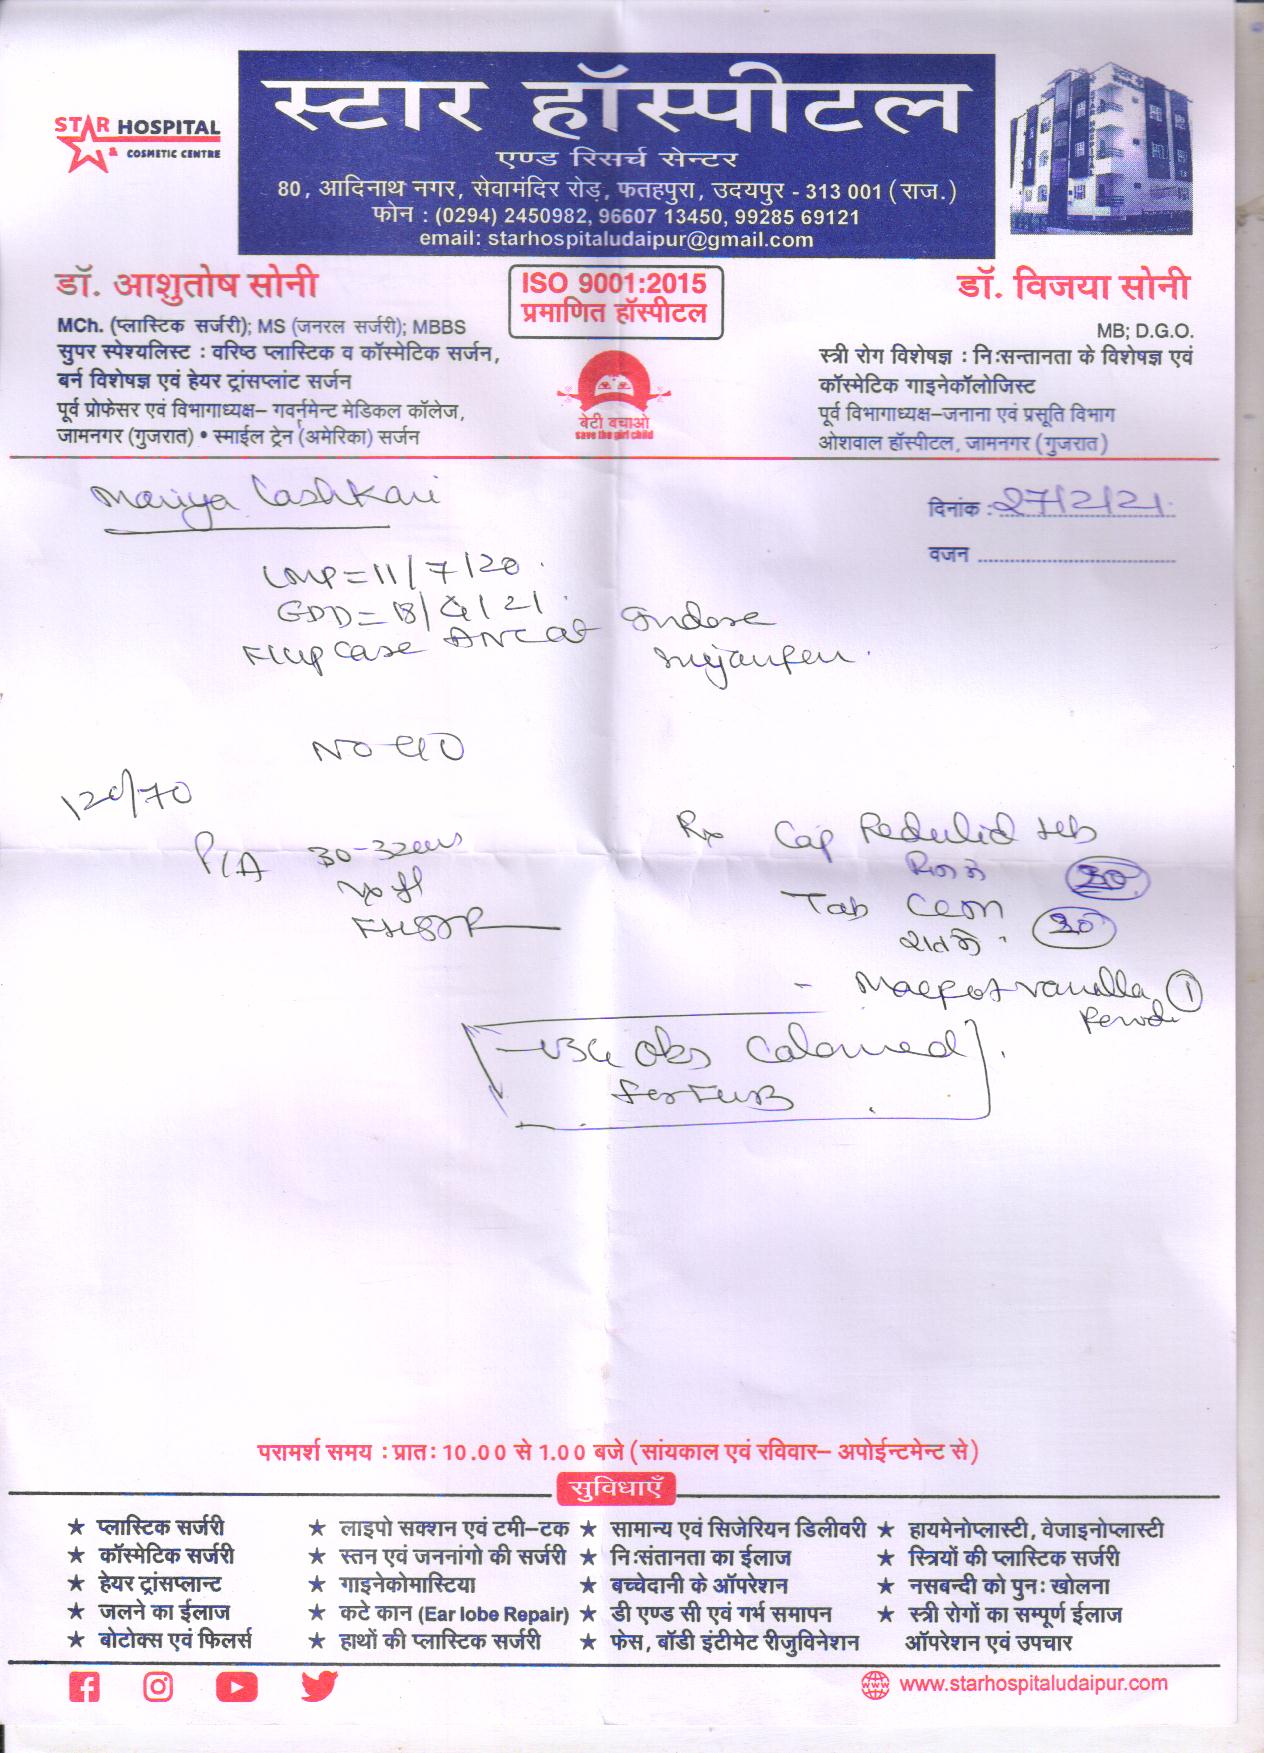 STAR HOSPITAL
& COSMETIC CENTRE
स्टार हॉस्पीटल
एण्ड रिसर्च सेन्टर
80, आदिनाथ नगर, सेवामंदिर रोड़, फतहपुरा, उदयपुर - 313 001 (राज.)
फोन : (0294) 2450982, 96607 13450, 99285 69121
email: starhospitaludaipur@gmail.com
डॉ. आशुतोष सोनी
MCh. (प्लास्टिक सर्जरी); MS (जनरल सर्जरी); MBBS
सुपर स्पेश्यलिस्ट : वरिष्ठ प्लास्टिक व कॉस्मेटिक सर्जन,
बर्न विशेषज्ञ एवं हेयर ट्रांसप्लांट सर्जन
पूर्व प्रोफेसर एवं विभागाध्यक्ष– गवर्नमेन्ट मेडिकल कॉलेज,
जामनगर (गुजरात) • स्माईल ट्रेन (अमेरिका) सर्जन
ISO 9001:2015
प्रमाणित हॉस्पीटल
बेटी बचाओ
save the girl child
डॉ. विजया सोनी
MB; D.G.O.
स्त्री रोग विशेषज्ञ : निःसन्तानता के विशेषज्ञ एवं
कॉस्मेटिक गाइनेकॉलोजिस्ट
पूर्व विभागाध्यक्ष–जनाना एवं प्रसूति विभाग
ओशवाल हॉस्पीटल, जामनगर (गुजरात)
Mariya Lashkari
दिनांक : 27/2/21
वजन
LMP = 11/7/20
EDD = 18/4/21
case ANC at Indore
No c/o
120/70
P/A 30-32
FHS
Rx Cap
30
Tab
रात में 30
vanilla 1
obs
परामर्श समय : प्रातः 10.00 से 1.00 बजे (सांयकाल एवं रविवार– अपोईन्टमेन्ट से)
सुविधाएँ
★ प्लास्टिक सर्जरी ★ लाइपो सक्शन एवं टमी–टक ★ सामान्य एवं सिजेरियन डिलीवरी ★ हायमेनोप्लास्टी, वेजाइनोप्लास्टी
★ कॉस्मेटिक सर्जरी ★ स्तन एवं जननांगो की सर्जरी ★ निःसंतानता का ईलाज ★ स्त्रियों की प्लास्टिक सर्जरी
★ हेयर ट्रांसप्लान्ट ★ गाइनेकोमास्टिया ★ बच्चेदानी के ऑपरेशन ★ नसबन्दी को पुनः खोलना
★ जलने का ईलाज ★ कटे कान (Ear lobe Repair) ★ डी एण्ड सी एवं गर्भ समापन ★ स्त्री रोगों का सम्पूर्ण ईलाज
★ बोटोक्स एवं फिलर्स ★ हाथों की प्लास्टिक सर्जरी ★ फेस, बॉडी इंटीमेट रीजुविनेशन ऑपरेशन एवं उपचार
www.starhospitaludaipur.com